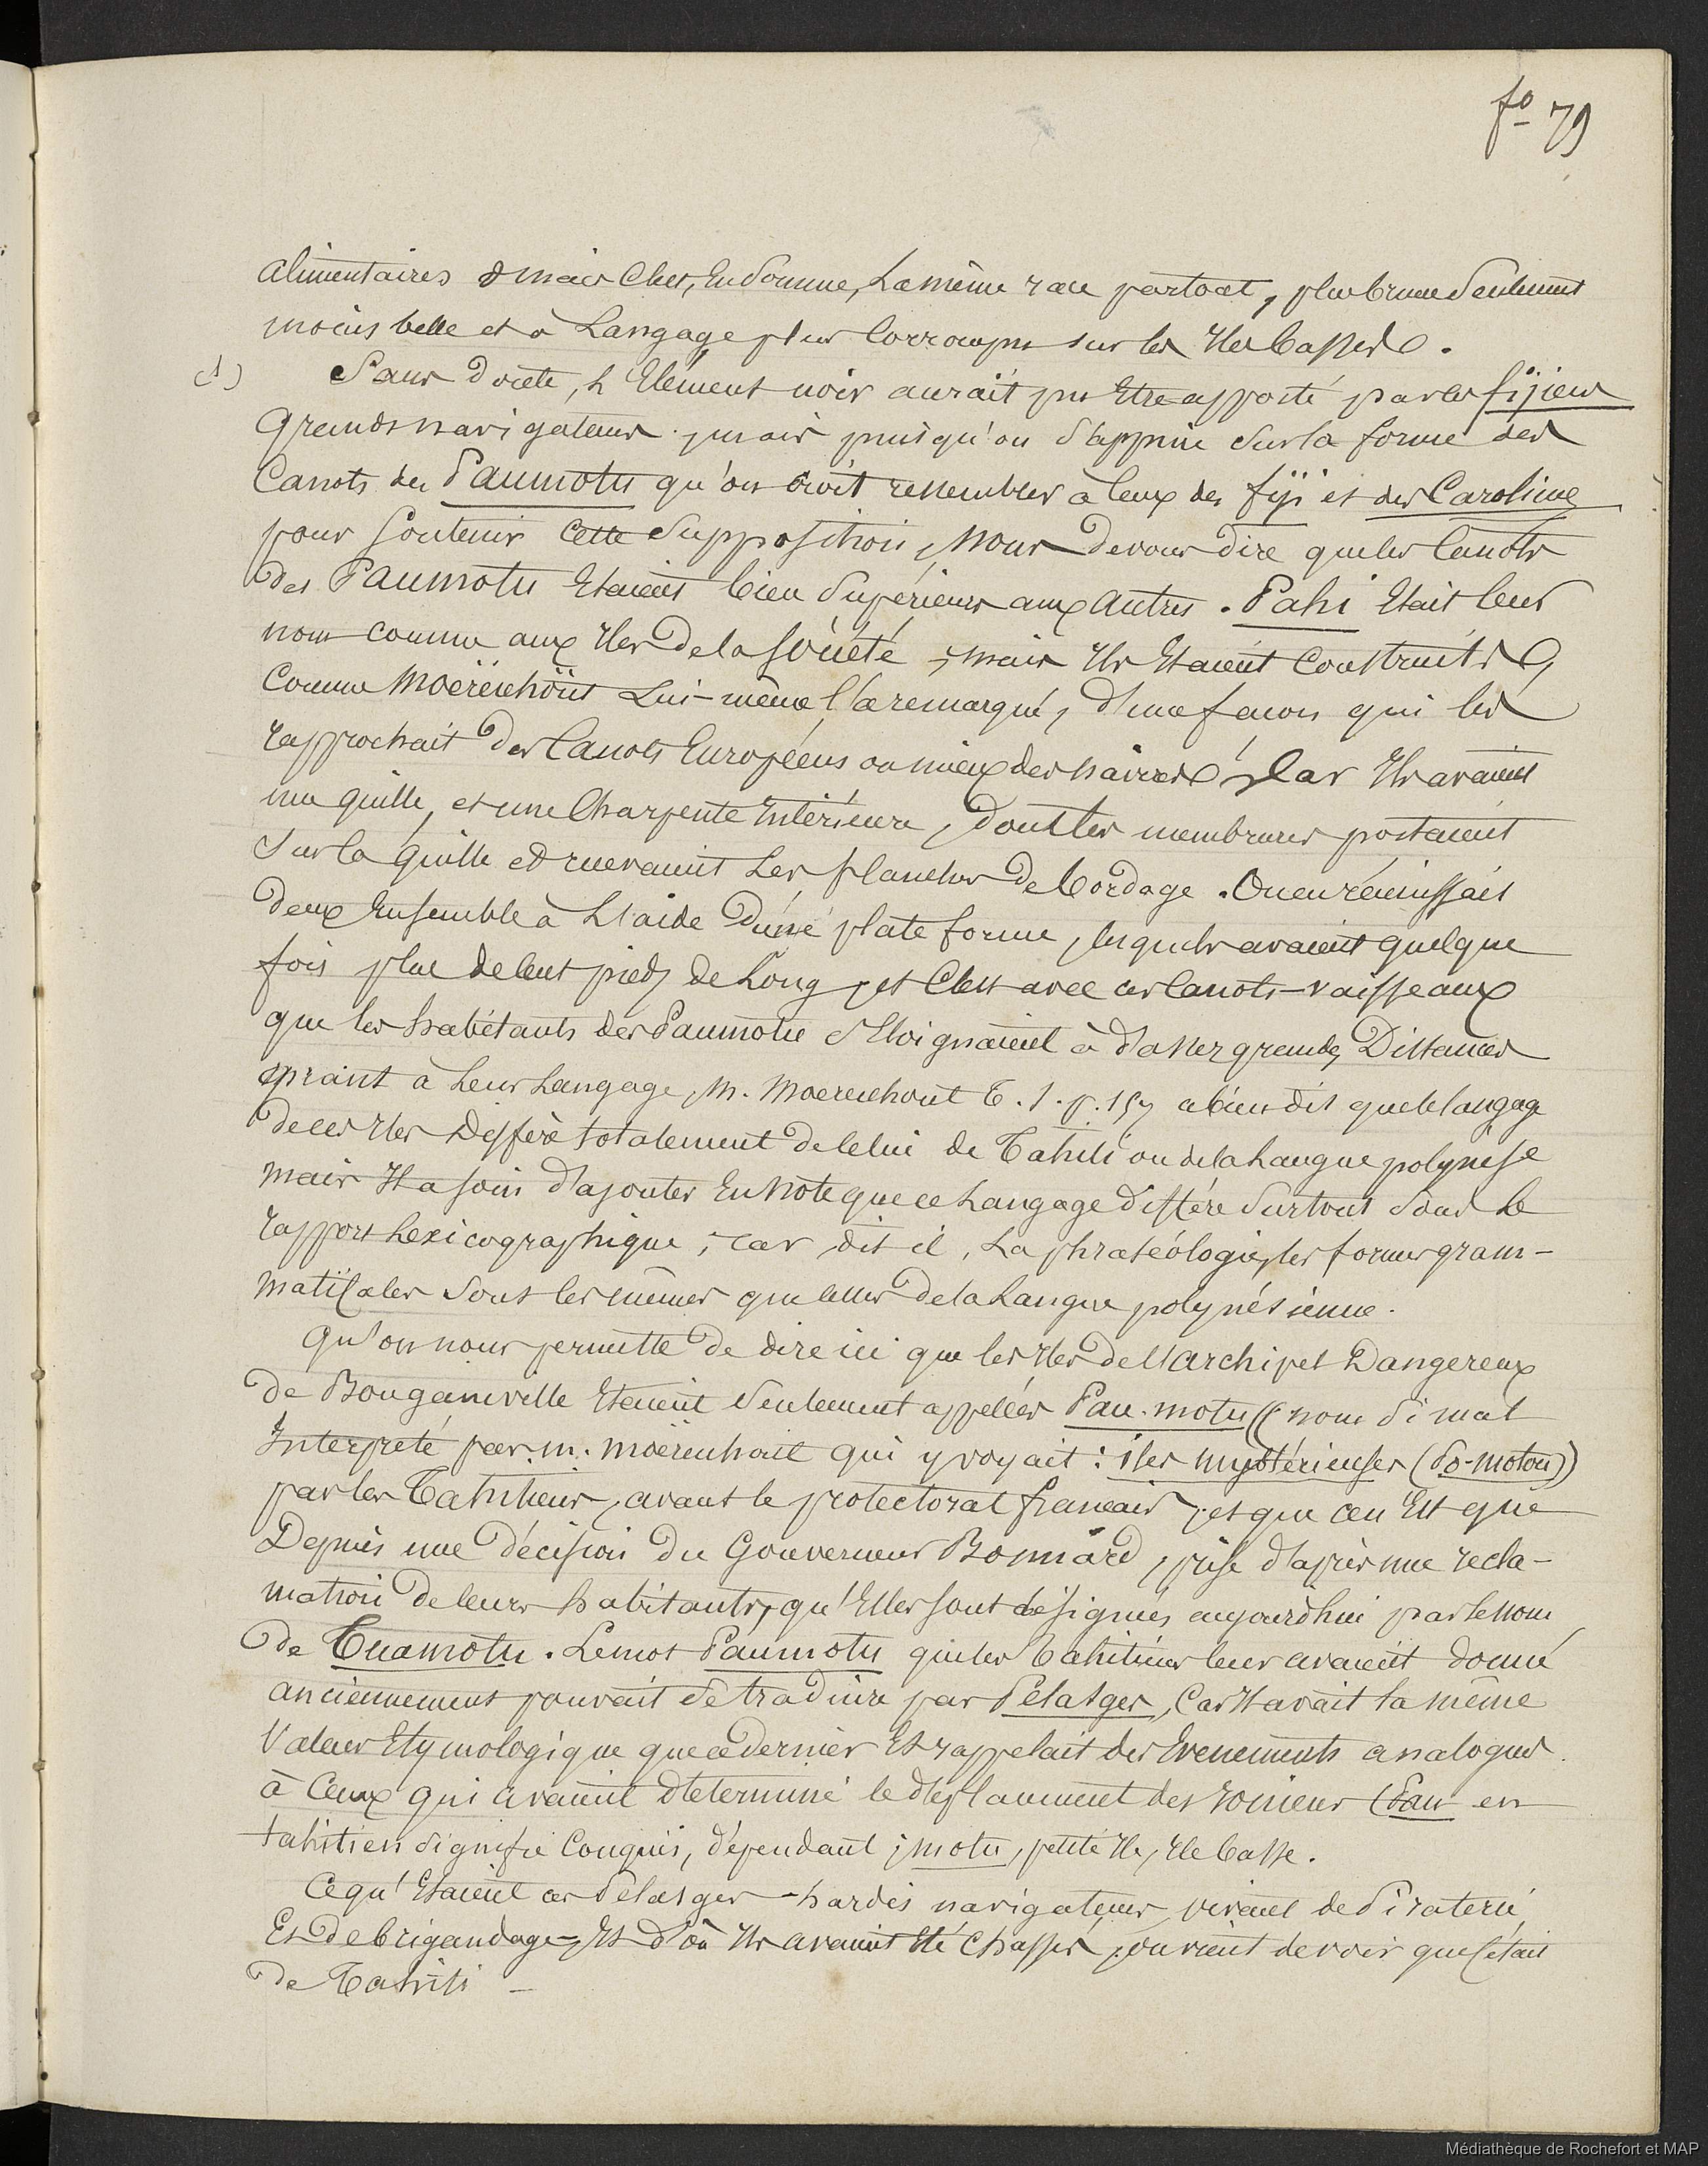 fo 79
alimentaires & mais C'est, En Somme, La même race partout, plus brune Seulement
moins belle et à Langage plus Corrompu sur les Iles basses.
(1) Sans doute, L'Elément noir aurait pu Etre apporté par les fijiens
Grands navigateurs. mais puisqu'on s'appuie Sur la forme des
Canots des Paumotu qu'on croit ressembler à Ceux des fiji et des Carolines
pour Soutenir Cette Supposition, Nous devons dire que les Canots
des Paumotu Etaient bien Supérieurs aux Autres. Pahi Etait leur
nom comme aux Iles de la Société ; mais Ils Etaient Construits
Comme Moërenhoüt Lui-même l'a remarqué, d'une façon qui les
rapprochait des Canots Européens ou mieux des navires, Car Ils avaient
une quille, et une Charpente Intérieure, dont les membrures portaient
Sur la quille et recevaient Les planches de bordage. On en réunissait
deux Ensemble à L'aide d'une plate forme, lesquels avaient quelque
fois plus de Cent pieds de Long, et C'est avec ces Canots-vaisseaux
que les habitants des Paumotu S'Eloignaient à d'assez grandes Distances
quant à Leur Langage, M. Moerenhout T. 1. p. 157 a bien dit que le langage
de ces Iles Diffère totalement de Celui de Tahiti ou de la Langue polynésie
mais Il a soin d'ajouter En Note que ce Langage diffère Surtout Sous Le
rapport Lexicographique ; car, dit il, La phraséologie, les formes gram-
maticales Sont les mêmes que celles de la Langue polynésienne.
Qu'on nous permette de dire ici que les Iles de l'Archipel Dangereux
de Bougainville Etaient Seulement appellées Pau-motu ((nom Si mal
Interprété par M. Moërenhout qui y voyait : îles mystérieuses (Po-motou))
par les Tahitiens, avant le protectorat français ; et que ce n'Est que
Depuis une décision du Gouverneur Bonnard, prise d'après une récla-
mation de leurs habitants, qu'Elles sont désignées aujourdhui par le nom
de Tuamotu. Le mot Paumotu que les Tahitiens leur avaient donné
anciennement pouvait Se traduire par Pélasges, Car Il avait la même
Valeur Etymologique que ce dernier Et rappelait des Evenements analogues
à Ceux qui avaient déterminé le déplacement des Ioniens (Pau en
tahitien Signifie Conquis, dépendant ; motu, petite Ile, Ile basse.
Ce qu'Etaient ces Pélasges - hardis navigateurs, vivant de Piraterie,
Et de brigandage -, Et d'où Ils avaient Eté Chassés, on vient de voir que C'était
de Tahiti -
Médiathèque de Rochefort et MAP